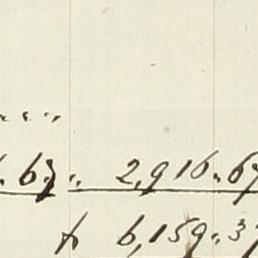 . 63. 2,916.67
$ 6,159.37